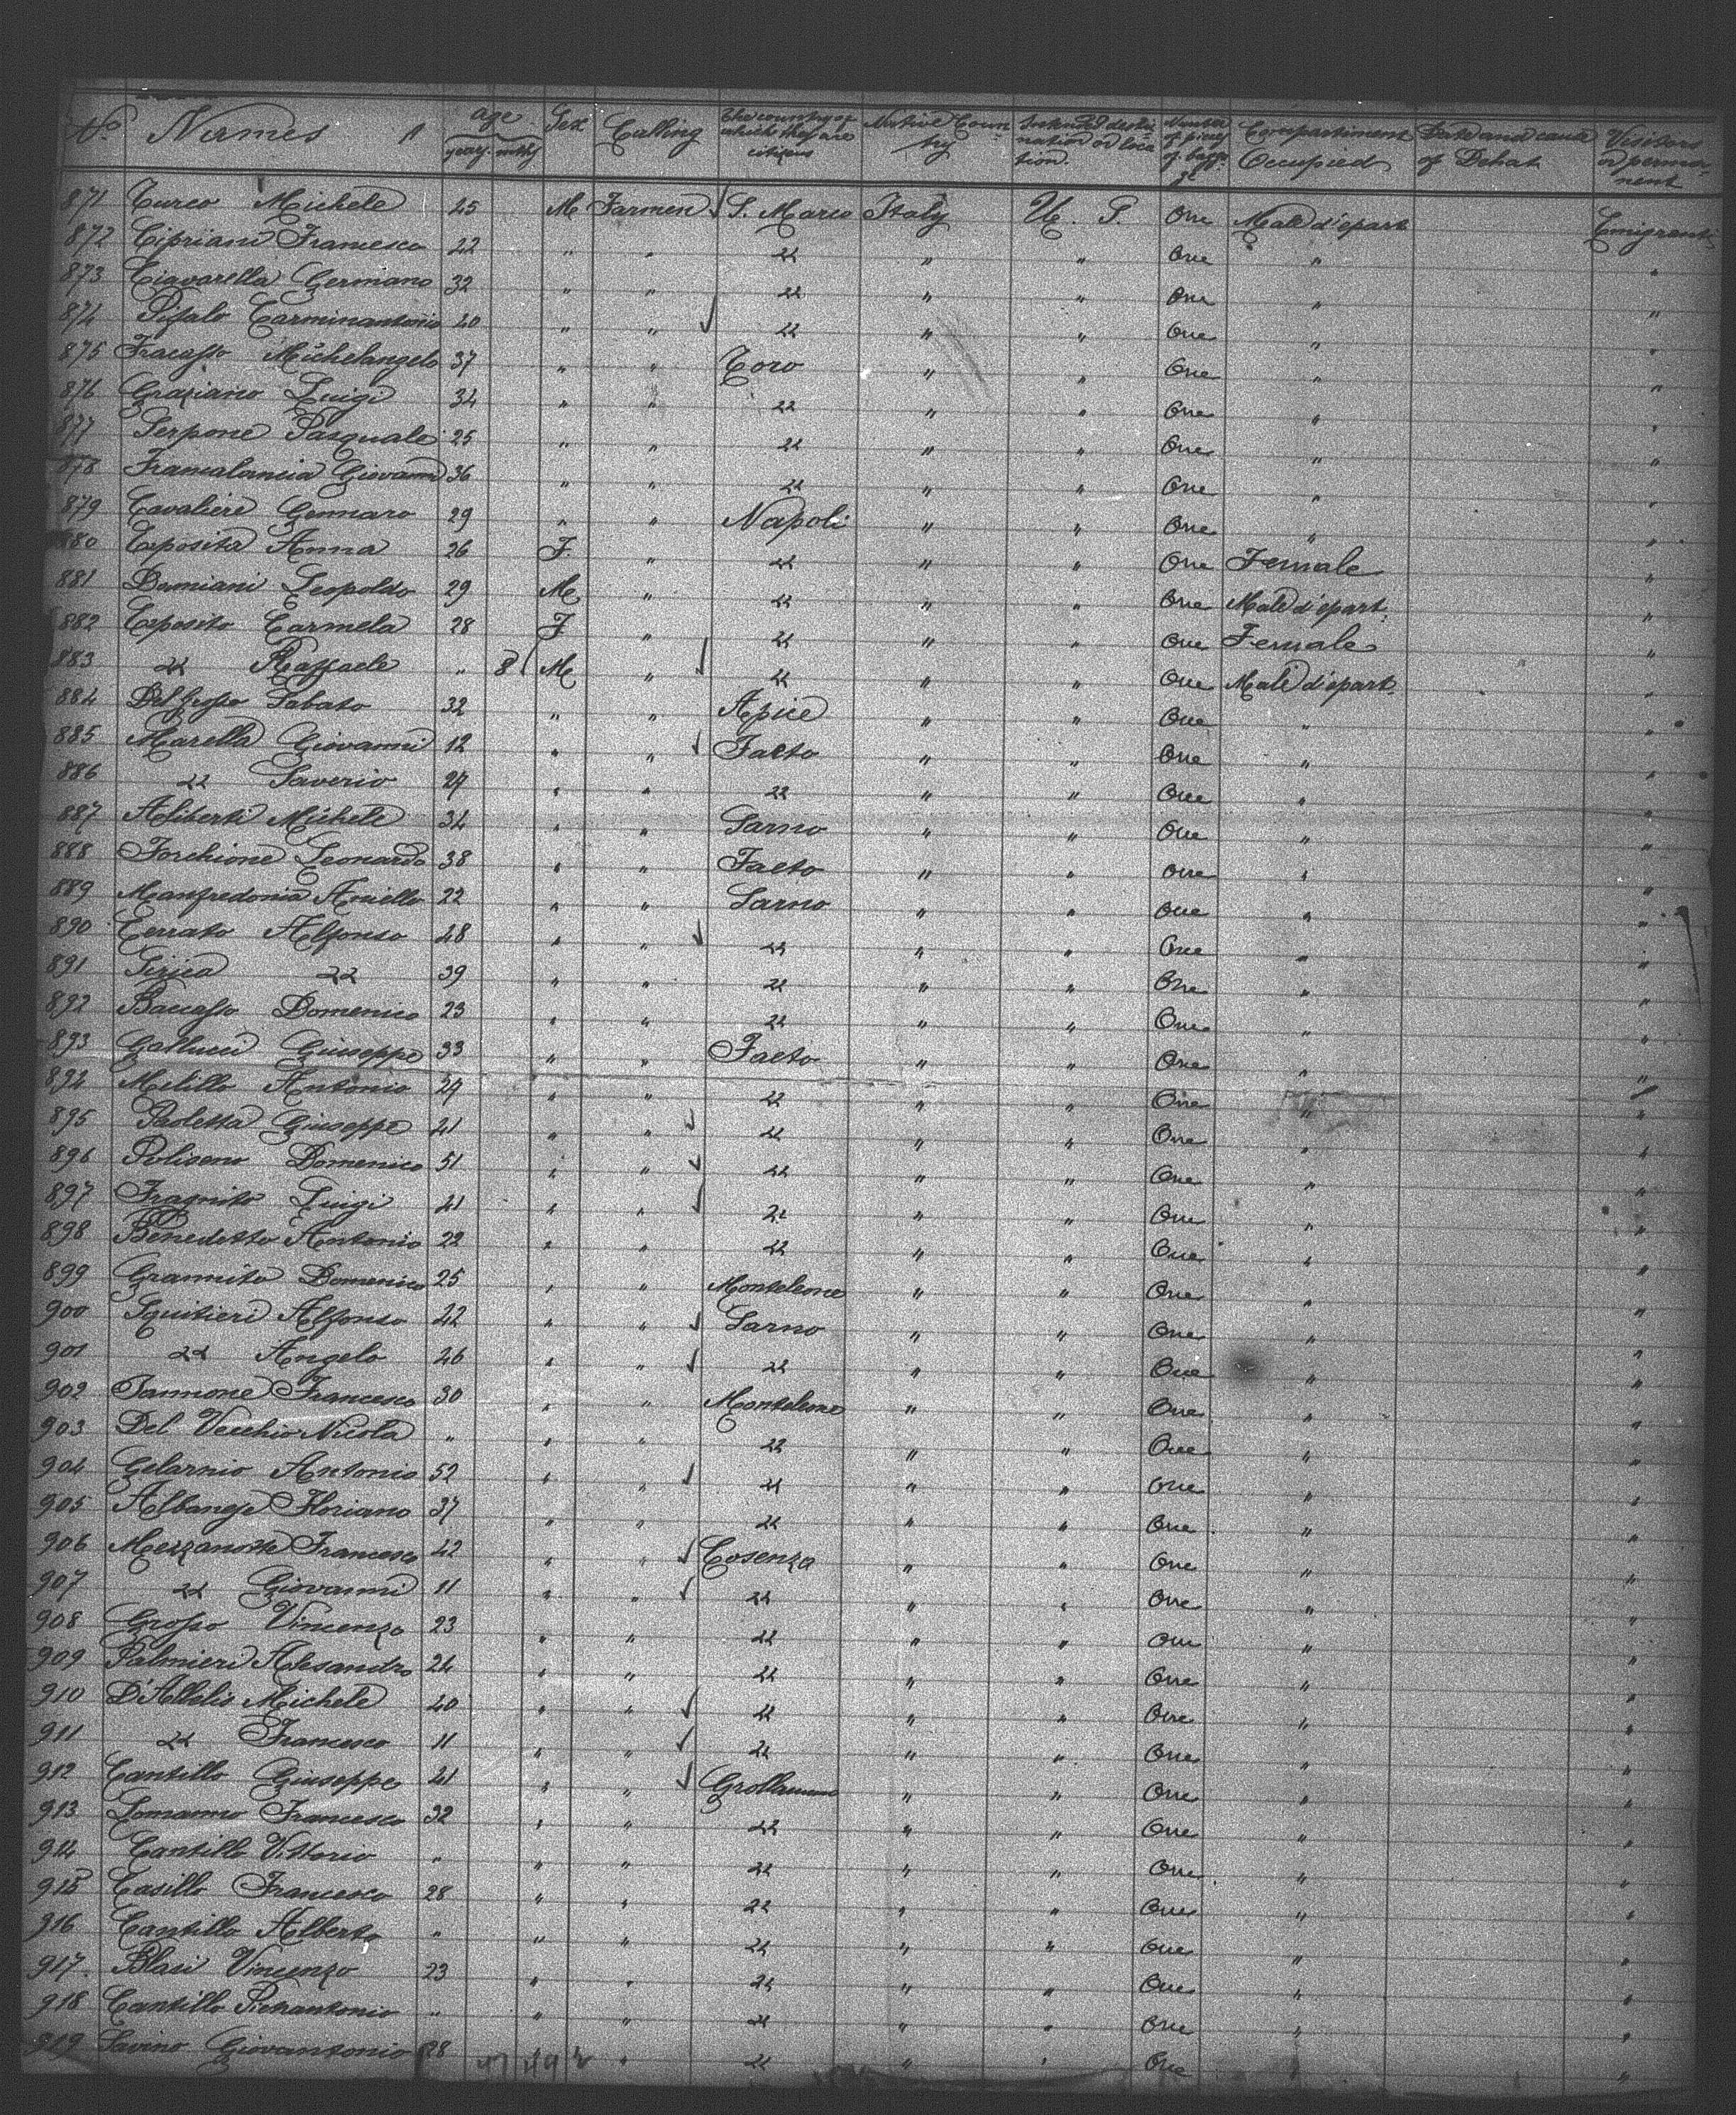 No Names age years mths Sex Calling The country of which they are citizens Native Country Intended destination or location Number of pieces of bagge Compartiment Occupied Date and cause of Dehat Visitors or permanent
871 Turco Michele 25 M Farmen S. Marco Italy U. S. One Male d'epart Emigrant
872 Cipriani Francesco 22 " " " " " One " "
873 Ciavarella Germano 32 " " " " " One " "
874 Carminantonio 40 " " " " " One " "
875 Fracasso Michelangelo 37 " " Toro " " One " "
876 Graziano Luigi 34 " " " " " One " "
877 Serpone Pasquale 25 " " " " " One " "
878 Francalancia Giovanni 36 " " " " " One " "
879 Cavaliere Gennaro 29 " " Napoli " " One " "
880 Esposita Anna 26 F. " " " " One Female "
881 Damiani Leopoldo 29 M " " " " One Male d'epart. "
882 Esposito Carmela 28 F. " " " " One Female "
883 " Raffaele " 8 M " " " " One Male d'epart. "
884 Del Grosso Sabato 32 " " Apice " " One " "
885 Marella Giovanni 12 " " Faeto " " One " "
886 " Saverio 27 " " " " " One " "
887 Aliberti Michele 34 " " Sarno " " One " "
888 Forchione Leonardo 38 " " Faeto " " One " "
889 Manfredonia Aniello 22 " " Sarno " " One " "
890 Cerrato Alfonso 48 " " " " " One " "
891 Sirica " 39 " " " " " One " "
892 Domenico 23 " " " " " One " "
893 Gallucci Giuseppe 33 " " Faeto " " One " "
894 Melillo Antonio 27 " " " " " One " "
895 Paoletta Giuseppe 41 " " " " " One " "
896 Poliseno Domenico 51 " " " " " One " "
897 Fragnito Luigi 41 " " " " " One " "
898 Benedetto Antonio 22 " " " " " One " "
899 Grannito Domenico 25 " " Monteleone " " One " "
900 Squitieri Alfonso 42 " " Sarno " " One " "
901 " Angelo 26 " " " " " One " "
902 Iannone Francesco 30 " " Monteleone " " One " "
903 Del Vecchio Nicola " " " " " " One " "
904 Gelarnio Antonio 52 " " " " " One " "
905 Albanese Floriano 37 " " " " " One " "
906 Mezzanotte Francesco 42 " " Cosenza " " One " "
907 " Giovanni 11 " " " " " One " "
908 Grosso Vincenzo 23 " " " " " One " "
909 Palmieri Alesandro 24 " " " " " One " "
910 Michele 40 " " " " " One " "
911 " Francesco 11 " " " " " One " "
912 Cantillo Giuseppe 41 " " " " One " "
913 Lomanno Francesco 32 " " " " " One " "
914 Cantillo Vittorio " " " " " " One " "
915 Casillo Francesco 28 " " " " " One " "
916 Cantillo Alberto " " " " " " One " "
917 Blasi Vincenzo 23 " " " " " One " "
918 Cantillo Pietrantonio " " " " " " One " "
919 Savino Giovantonio 28 " " " " One "